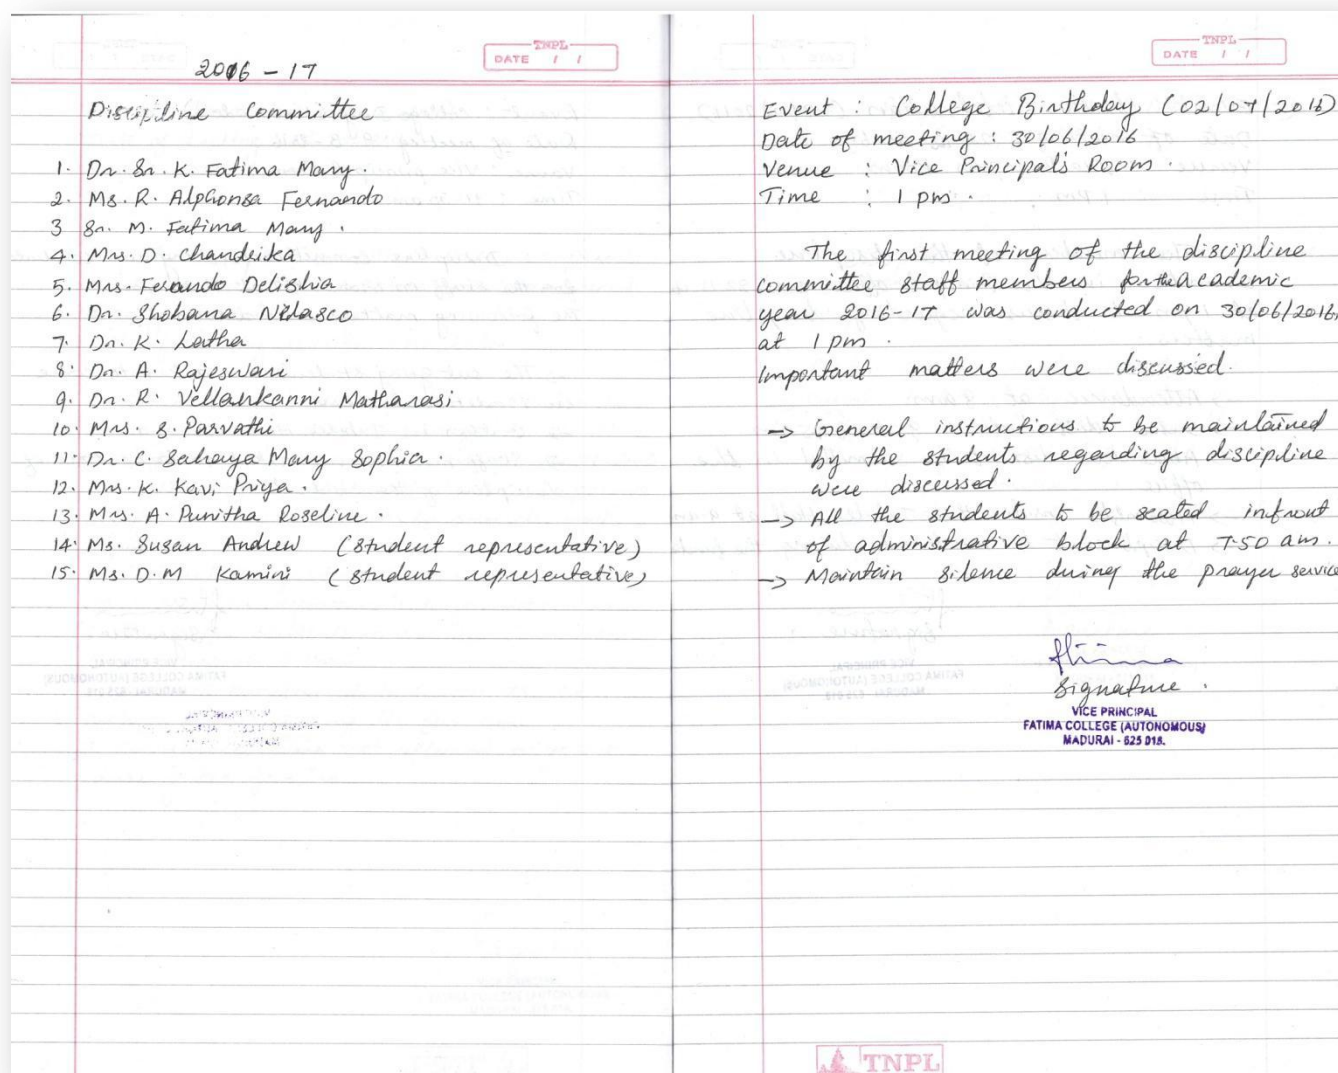 TNPL
DATE / /
2016 - 17
Discipline Committee
1. Dr. Sr. K. Fatima Mary.
2. Ms. R. Alphonsa Fernando
3 Sr. M. Fatima Mary.
4. Mrs. D. Chandrika
5. Mrs. Ferando Delishia
6. Dr. Shobana Nelasco
7. Dr. K. Latha
8. Dr. A. Rajeswari
9. Dr. R. Vellankanni Matharasi
10. Mrs. S. Parvathi
11. Dr. C. Sahaya Mary Sophia.
12. Mrs. K. Kavi Priya.
13. Mrs. A. Punitha Roseline.
14. Ms. Susan Andrew (student representative)
15. Ms. D.M Kamini (student representative)
TNPL
DATE / /
Event : College Birthday (02/07/2016)
Date of meeting : 30/06/2016
Venue : Vice Principal's Room.
Time : 1 pm.
The first meeting of the discipline
committee staff members for the Academic
year 2016-17 was conducted on 30/06/2016,
at 1 pm.
Important matters were discussed.
-> General instructions to be maintained
by the students regarding discipline
were discussed.
-> All the students to be seated infront
of administrative block at 7.50 am.
-> Maintain silence during the prayer service
Signature.
VICE PRINCIPAL
FATIMA COLLEGE (AUTONOMOUS)
MADURAI - 625 018.
TNPL